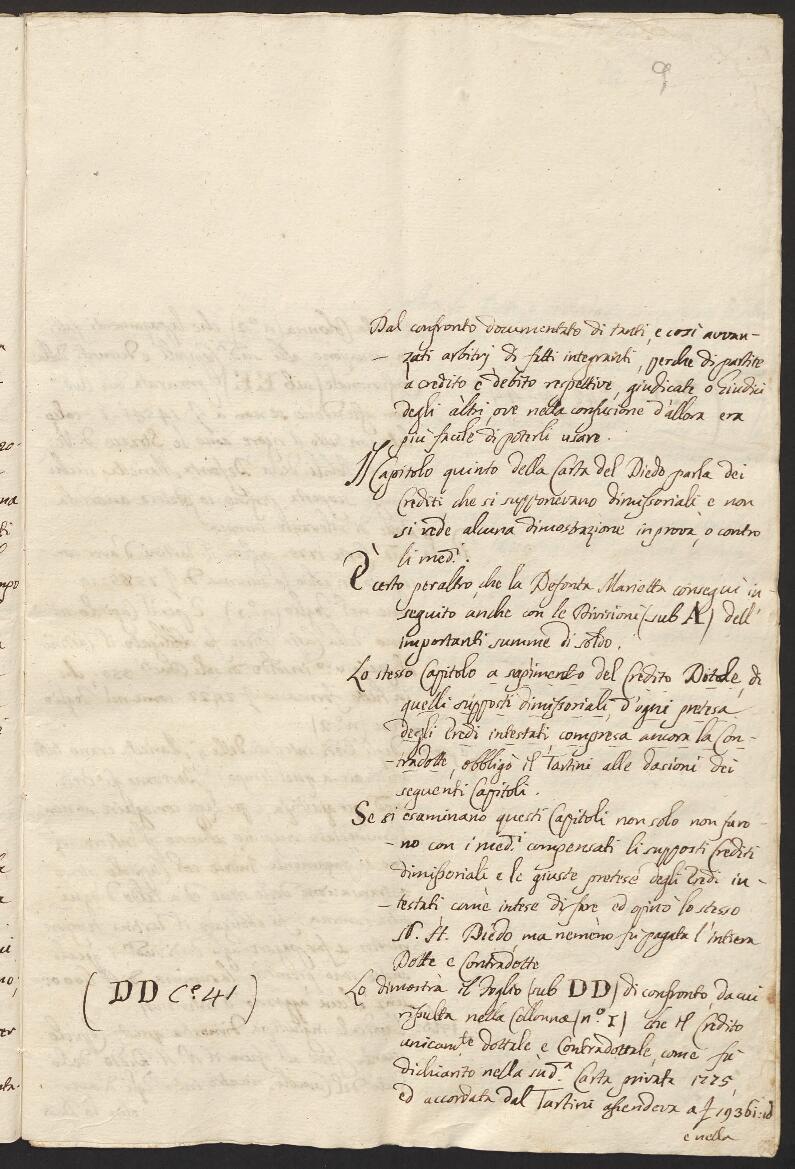 9
Dal confronto documentato di tanti, e così avvan-
- zati arbitrj di fatti integranti, perche di partite
a credito e debito respettive, giudicate o Giudici
degli altri, ove nella confusione d'allora era
più facile di poterli usare.
Il Capitolo quinto della Carta del Diedo parla dei
Crediti che si supponevano dimissoriali e non
si vede alcuna dimostrazione in prova, o contro
li med.i.
È certo peraltro, che la Defonta Marietta conseguì in
seguito anche con le Divisioni (sub A) dell'
importanti summe di soldo.
Lo stesso Capitolo a sopimento del Credito Dotale, di
quelli supposti dimissoriali, d'ogni pretesa
degli Eredi intestati, compresa ancora la Con-
- tradotte, obbligò il Tartini alle dasioni dei
seguenti Capitoli.
Se si esaminano questi Capitoli non solo non furo-
- no con i med.i compensati li supposti Crediti
dimissoriali e le giuste pretese degli Eredi in-
- testati com'è intese di fare ed opinò lo stesso
N. H. Diedo, ma nemeno fù pagata l'intiera
Dotte e Contradotte
Lo dimostra il Foglio (sub DD) di confronto, da cui
risulta nella Collonna (n.o I) che il Credito
unicam.te dottale e Contradottale, come fù
dichiarito nella sud.a Carta privata 1775,
ed accordata dal Tartini ascendeva a £ 19361:10
e nella
(DD C.e 41)